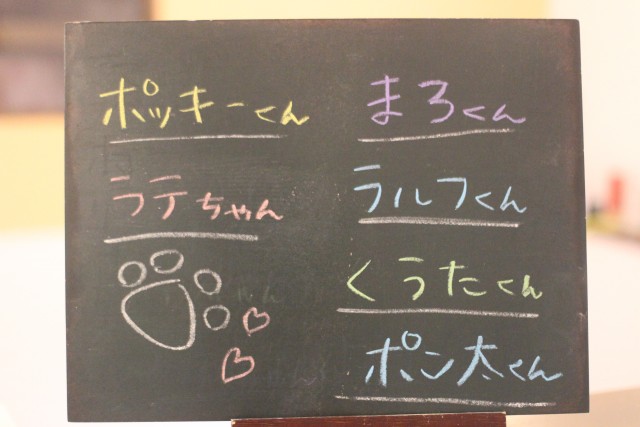 ポッキーくん
ラテちゃん
まろくん
ラルフくん
くうたくん
ポン太くん